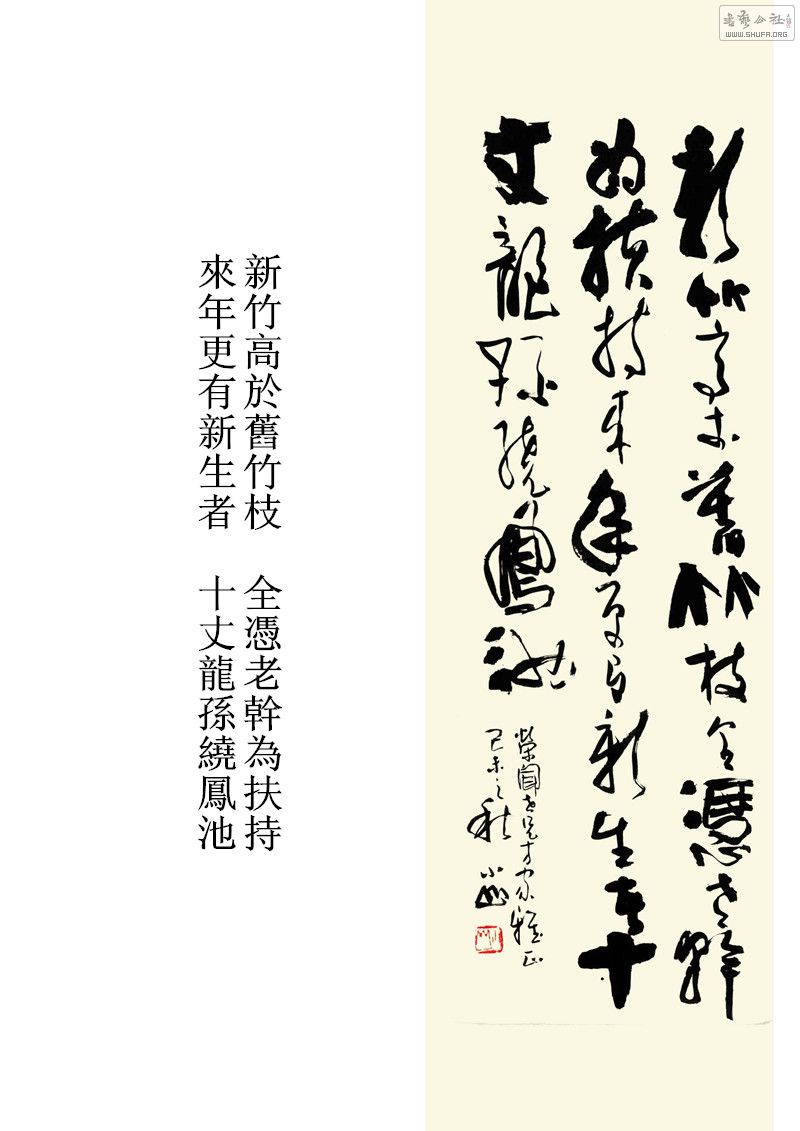 書藝公社
WWW.SHUFA.ORG
新竹高於舊竹枝全憑老幹
為扶持來年更有新生者十
丈龍孫繞鳳池
榮老兄方家雅正
己未之秋
新竹高於舊竹枝　全憑老幹為扶持
來年更有新生者　十丈龍孫繞鳳池